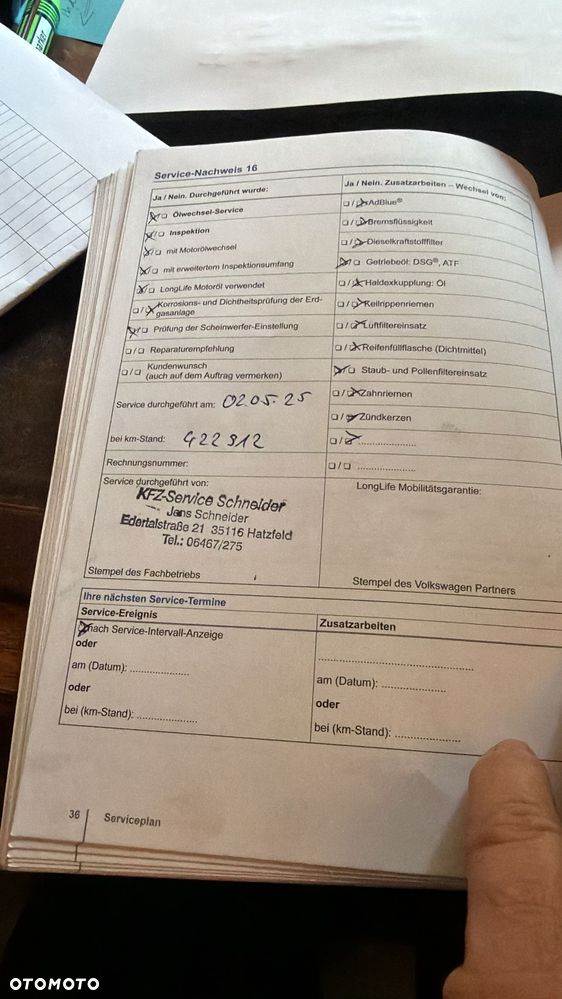 Service-Nachweis 16
Ja / Nein. Durchgeführt wurde:
Ölwechsel-Service
Inspektion
mit Motorölwechsel
mit erweitertem Inspektionsumfang
LongLife Motoröl verwendet
Korrosions- und Dichtheitsprüfung der Erd-
gasanlage
Prüfung der Scheinwerfer-Einstellung
Reparaturempfehlung
Kundenwunsch
(auch auf dem Auftrag vermerken)
Service durchgeführt am: 02.05.25
bei km-Stand: 422 912
Rechnungsnummer:
Service durchgeführt von:
KFZ-Service Schneider
Jens Schneider
Edertalstraße 21 35116 Hatzfeld
Tel.: 06467/275
Stempel des Fachbetriebs
Ja / Nein. Zusatzarbeiten – Wechsel von:
AdBlue®
Bremsflüssigkeit
Dieselkraftstofffilter
Getriebeöl: DSG®, ATF
Haldexkupplung: Öl
Keilrippenriemen
Luftfiltereinsatz
Reifenfüllflasche (Dichtmittel)
Staub- und Pollenfiltereinsatz
Zahnriemen
Zündkerzen
LongLife Mobilitätsgarantie:
Stempel des Volkswagen Partners
Ihre nächsten Service-Termine
Service-Ereignis
nach Service-Intervall-Anzeige
oder
am (Datum): ....................
oder
bei (km-Stand): ....................
Zusatzarbeiten
am (Datum): ....................
oder
bei (km-Stand): ....................
36 Serviceplan
OTOMOTO